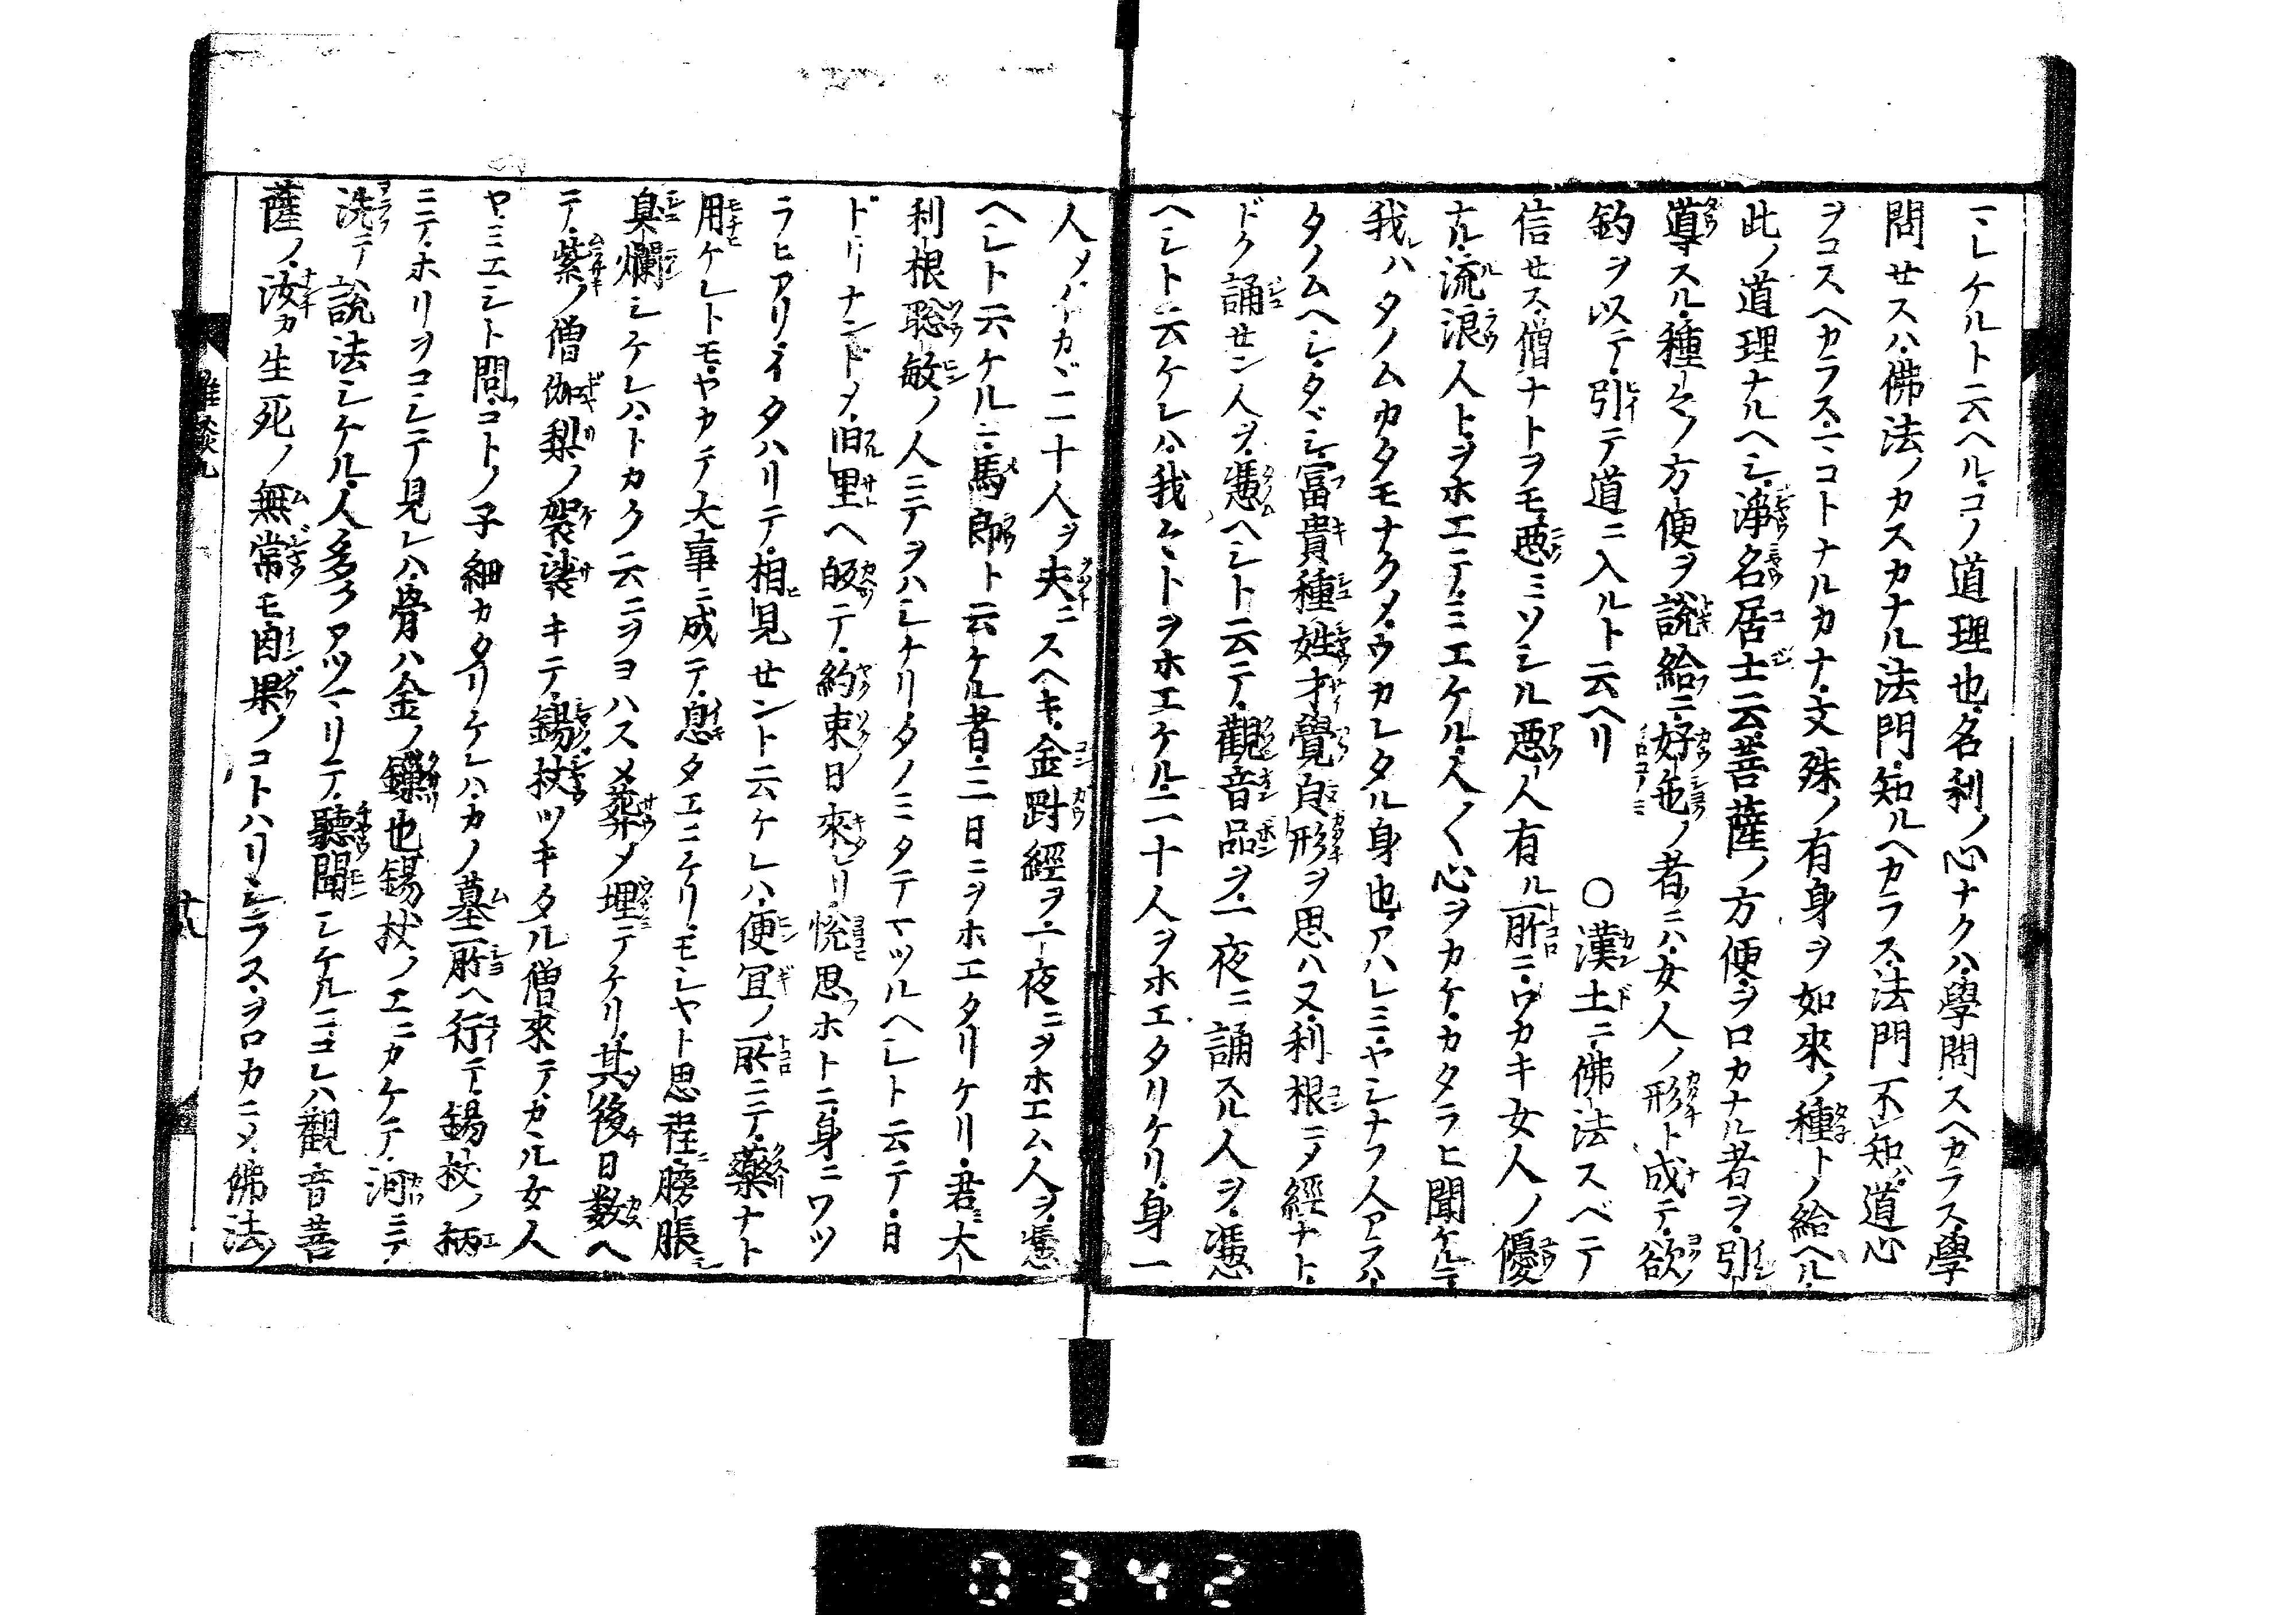 マシケルト云ヘル.コノ道理也.名利ノ心ナクハ.學問スヘカラス.學
問セスハ.佛法ノカスカナル法門.知ルヘカラス.法門不知道心
ヲコスヘカラス.マコトナルカナ.文殊ノ有身ヲ如來ノ種トノ給ヘル.
此ノ道理ナルヘシ.淨名居士云.菩薩ノ方便.ヲロカナル者ヲ.引
導スル.種々ノ方便ヲ說給ニ.好色ノ者ニハ.女人ノ形ト成テ.欲
釣ヲ以テ.引テ道ニ入ルト云ヘリ 〇漢土ニ.佛法スベテ
信セス.僧ナトヲモ.惡ミソシル惡人有ル所ニ.ワカキ女人ノ優
ナル.流浪人トヲホエテ.ミエケル.人ノ〱心ヲカケ.カタラヒ聞ケルニ.
我ハタノムカタモナクメ.ウカレタル身也.アハレミ.ヤシナフ人アラハ.
タノムヘシ.タヾシ.冨貴種姓才覺皃形ヲ思ハス.利根ニメ經ナト.
ドク誦セン人ヲ.憑ヘシト云テ.觀音品ヲ.一夜ニ誦スル人ヲ.憑
ヘシト云ケレハ.我々トヲホエケル.二十人ヲホエタリケリ.身一
人メ.イカヾ二十人ヲ夫ニスヘキ.金剛經ヲ.一夜ニヲホエム人ヲ.憑
ヘシト云ケルニ.馬郎ト云ケル者.三日ニヲホエタリケリ.君.大
利根聡敏ノ人ニテヲハシケリ.タノミタテマツルヘシト云テ.日
ドリナンドメ.旧里ヘ皈テ.約束日來レリ.悅思フホトニ.身ニワツ
ラヒアリ.イタハリテ.相見セント云ケレハ.便冝ノ所ニテ.藥ナト
用ケレトモ.ヤカテ大事ニ成テ.息タエニケリ.モシヤト思程ニ.膀脹
臭爛シケレハ.トカク云ニヲヨハスメ葬メ埋テケリ.其後日数ヘ
テ.紫ノ僧伽梨ノ袈裟キテ.錫杖ツキタル僧來テ.カヽル女人
ヤ.ミエシト問.コトノ子細カタリケレハ.カノ墓所ヘ行テ.錫杖ノ柄
ニテ.ホリヲコシテ見レハ.骨ハ金ノ鏁也.錫杖ノエニカケテ.河ニテ
洗テ說法シケル.人多クアツマリテ.聽聞シケルニ.コレハ觀音菩
薩ノ.汝カ生死ノ無常モ因果ノコトハリ.シラス.ヲロカニメ.佛法ノ
雜談九
十八
0342